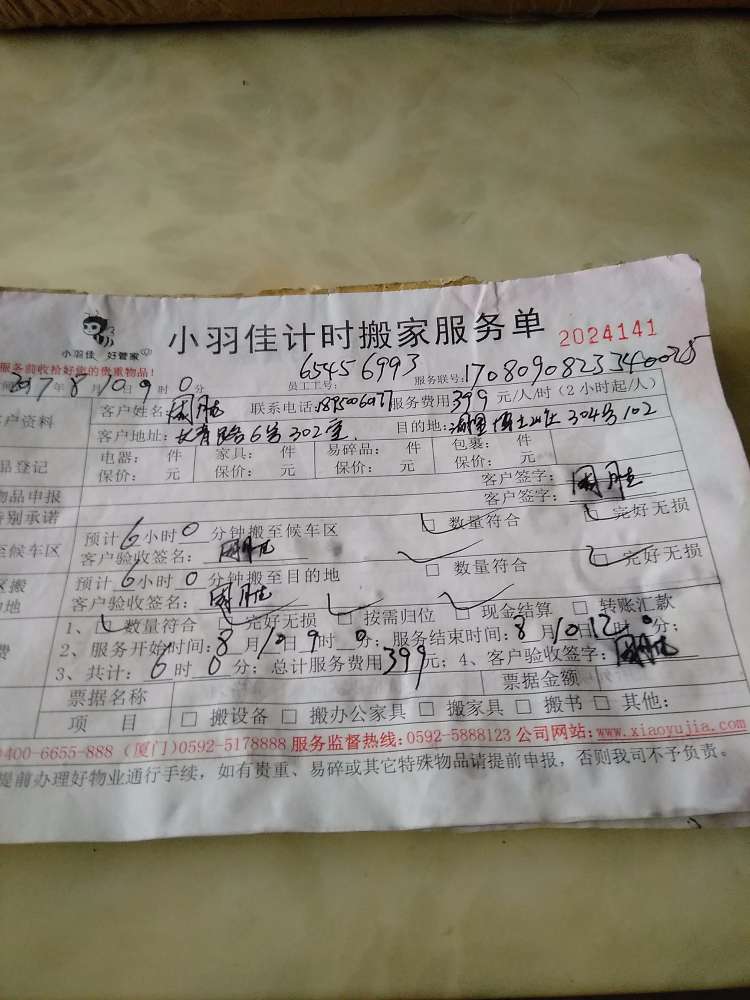 小羽佳计时搬家服务单 2024141
小羽佳 好管家
服务前收拾好您的贵重物品!
员工工号: 65456993 服务联号: 1708090823340025
2017年8月10日9时0分
客户资料 客户姓名: 周胜 联系电话: 服务费用399元/人/时(2小时起/人)
客户地址: 长青路6号302室 目的地: 湖里 304号102
品登记 电器: 件 家具: 件 易碎品: 件 包裹: 件
保价: 元 保价: 元 保价: 元 保价: 元
物品申报 客户签字:
特别承诺 客户签字: 周胜
至候车区 预计6小时0分钟搬至候车区 数量符合 完好无损
客户验收签名: 周胜
区搬 预计6小时0分钟搬至目的地 □ 数量符合 □ 完好无损
的地 客户验收签名: 周胜
1、□ 数量符合 □ 完好无损 □ 按需归位 □ 现金结算 □ 转账汇款
费 2、服务开始时间: 8月10日9时0分; 服务结束时间: 8月10日12时0分;
3、共计: 6时0分; 总计服务费用399元; 4、客户验收签字: 周胜
票据名称 票据金额
项 目 □ 搬设备 □ 搬办公家具 □ 搬家具 □ 搬书 □ 其他:
0400-6655-888 (厦门)0592-5178888 服务监督热线:0592-5888123 公司网站:www.xiaoyujia.com
提前办理好物业通行手续，如有贵重、易碎或其它特殊物品请提前申报，否则我司不予负责。